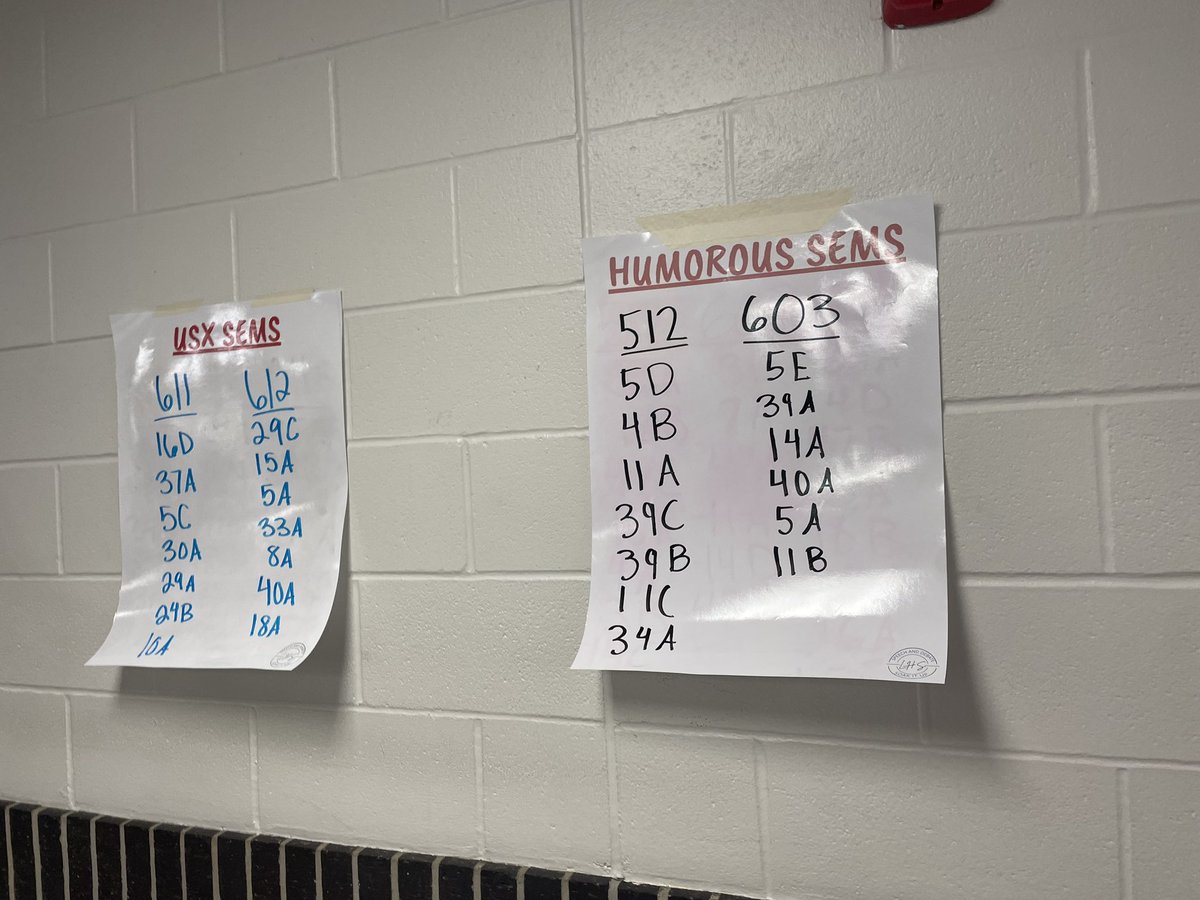 USX SEMS
611 612
16D 29C
37A 15A
5C 5A
30A 33A
29A 8A
24B 40A
10A 18A
HUMOROUS SEMS
512 603
5D 5E
4B 39A
11A 14A
39C 40A
39B 5A
11C 11B
34A
SPEECH AND DEBATE
LHS